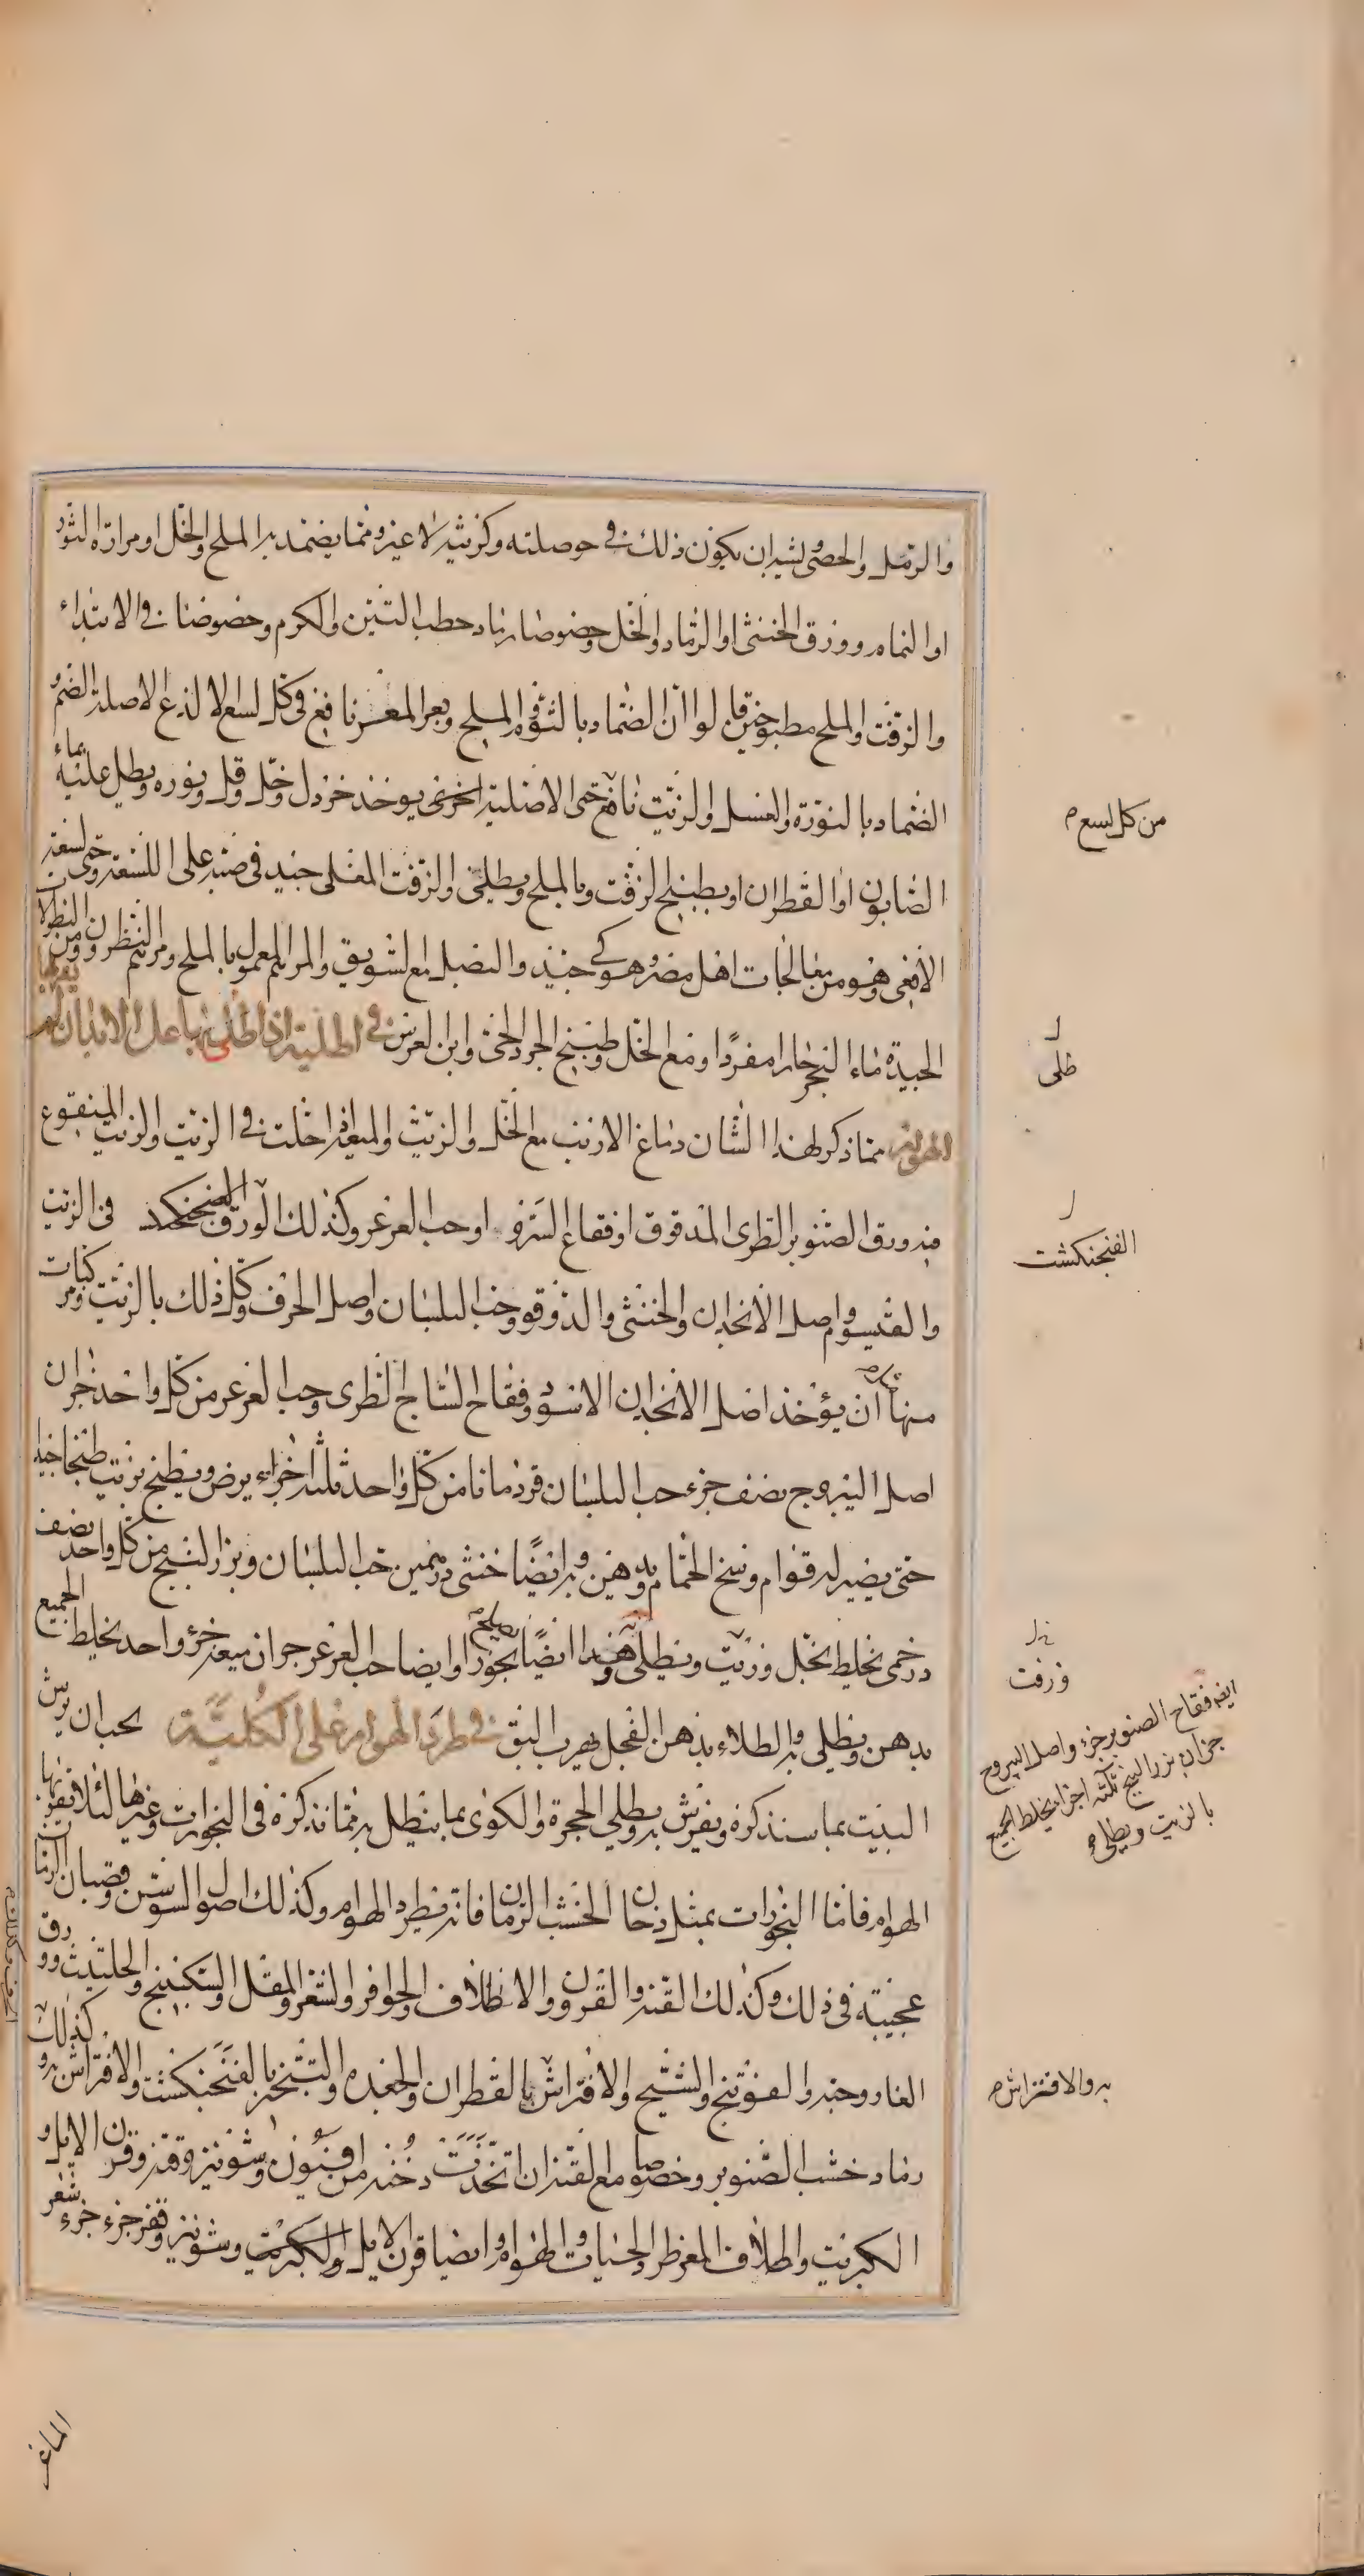 والرمل والحصى لشبه ان يكون ذلك في حوصلته وكرشه لا غير ومما يضمد به الملح والخل او مرارة الثور
او النمام وورق الخنثى او الرماد والخل وخصوصا رماد حطب التين والكرم وخصوصا في الابتداء
والزفت والملح مطبوخين قالوا ان الضماد بالثوم والملح وبعر المعز نافع في كل لسع الا لذع الاصلة الصم و
الضماد بالنورة والعسل والزيت نافع حتى الاصلية اخرى يوخذ خردل وخل وقلى ونوره ويطلى عليه بماء
الصابون او القطران او بطبيخ الزفت وبالملح ويطلى والزفت المغلى جيد في صبه على اللسعة وحتى لسعة
الافعى وهو من معالجات اهل مصر وهو كي جيد والبصل مع السويق والمرهم المعمول بالملح ومرهم النطرون ومن النطولا
الجيدة ماء البحر حارا مفردا او مع الخل وطبيخ الجرد الحى وابن العرس في اطلية اذا طلى بها على الابدان لم يقربها
الهوام مما ذكر لهذا الشان دماغ الارنب مع الخل والزيت والميعة اذا حلت في الزيت والزيت المنقوع
فيه ورق الصنوبر الطرى المدقوق او فقاع السرو او حب العرعر وكذلك الورق الفنجنكد في الزيت
والقيسوم واصل الانجدان والخنثى والدوقو وحب البلسان واصل الحرف وكل ذلك بالزيت ومركبات
منها ان يؤخذ اصل الانجدان الاسود وفقاح الساج الطرى وحب العرعر من كل واحد جزان
اصل اليبروج نصف جزء حب البلسان قردمانا من كل واحد ثلثة اجزاء يرض ويطبخ بزيت طبخا جيدا
حتى يصير له قوام وسخ الحمام ويدهن به وايضا خنثى درهمين حب البلسان وبزر البنج من كل واحد نصف
درخمى يخلط بخل وزيت ويطلى به وهذا ايضا يصلح بخورا وايضا حب العرعر جزان ميعه جزء واحد يخلط الجميع
بدهن ويطلى به والطلاء بدهن الفجل يهرب البق في طرد الهوام على الكلية يجب ان يرش
البيت بما سنذكره ويفرش به ويطلي الحجرة والكوى بما ينطل به مما نذكره في البخورات وغيرها لئلا يقربها
الهوام فاما البخورات بمثل دخان الخشب الرمان فانه يطرد الهوام وكذلك اصول السوسن وقضبان الرمان
عجيبة في ذلك وكذلك القنه والقرون والاظلاف والحوافر والشعر والمقل والسكبينج والحلتيث وورق
الغار وحبه والفوتنج والشيح والافتراش بالقطران والجعده والتبخير بالفنجنكشت والافتراش به وكذلك
رماد خشب الصنوبر وخصوصا مع القنه ان اتخذت دخنه من افيون وشونيز وقنه وقرن الايل و
الكبريت واظلاف المعز طرد الحيات والهوام وايضا قرن الايل والكبريت وشونيز وقفر جزء جزء شعر
الماعز
من كل لسع
طلى
الفنجنكشت
وزفت
ايضا فقاح الصنوبر جزء واصل اليبروح
جزان بزر البنج ثلثه اجزا يخلط الجميع
بالزيت ويطلى
به والافتراش